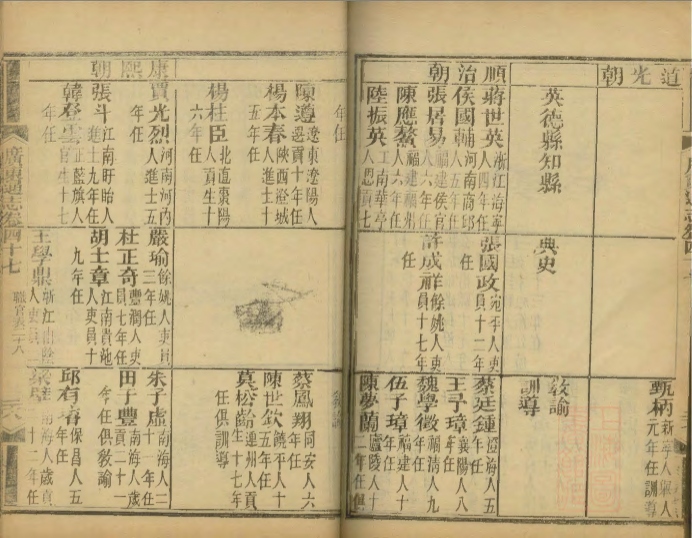 道光朝
甄柄
元年任訓導
英德縣知縣
典史
教諭
訓導
順治朝
蔣世英浙江海寧
人四年任
侯國輔河南商邱
人五年任
張居易福建侯官
人六年任
陳應鰲福建福州
人六年任
陸振英江南華亭
人恩貢七
年任
張國政宛平人吏
員十二年
任
許成祥餘姚人吏
員十七年
任
蔡廷鍾澄海人五
年任
襄陽人八
年任
魏學徵福清人九
年任
伍子璋福建人十
年任
陳夢蘭廬陵人十
蔡鳳翔同安人六
年任
陳世欽饒平人十
五年任
莫松齡連州人貢
生十七年
任俱訓導
康熙朝
陳遵遼東遼陽人
恩貢十年任
楊本春陝西澄城
人進士十
五年任
楊柱臣北直棗陽
人貢生十
六年任
賈光烈河南河內
人進士五
年任
張斗江南盱眙人
進士九年任
韓登雲正藍旗人
官生十七
年任
嚴瑜餘姚人吏員
三年任
杜正奇豐潤人吏
員七年任
胡士章江南貴池
人吏員十
九年任
王學鼎浙江山陰
朱子虛南海人二
十一年任
田子豐南海人歲
貢二十一
年任俱教諭
邱有容保昌人五
年任
南海人歲貢
十二年任
廣東通志卷四十七
職官表三十八